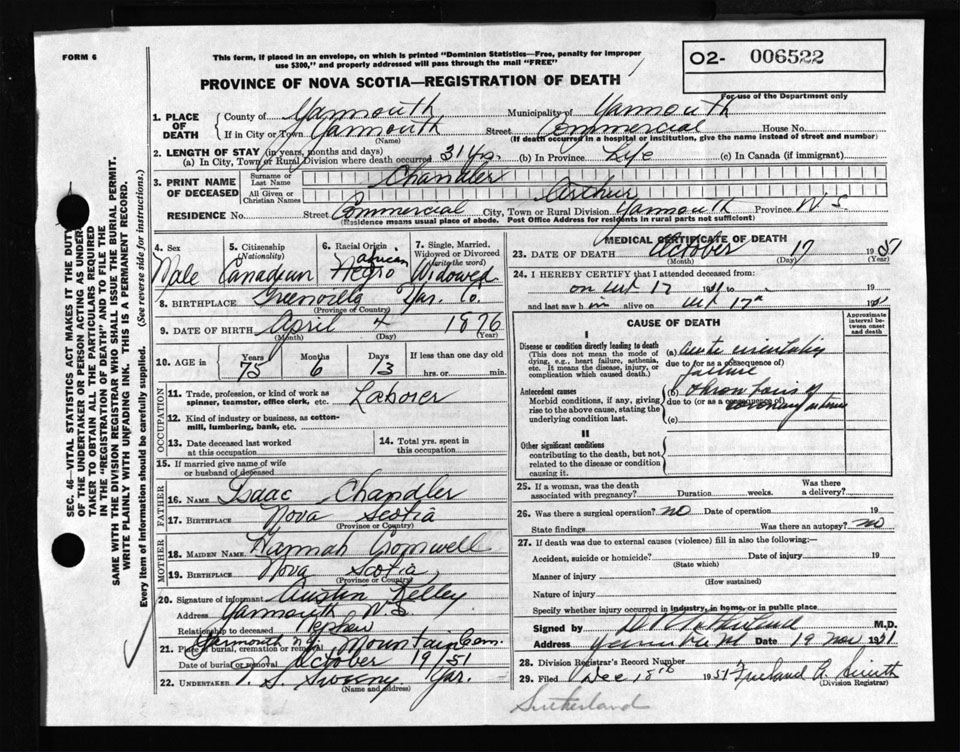 FORM 6
This form, if placed in an envelope, on which is printed "Dominion Statistics—Free, penalty for improper
use $300," and properly addressed will pass through the mail "FREE"
PROVINCE OF NOVA SCOTIA—REGISTRATION OF DEATH
O2- 006522
For use of the Department only
1. PLACE OF DEATH
County of Yarmouth Municipality of Yarmouth
If in City or Town Yarmouth Street Commercial House No.
(Name) (If death occurred in a hospital or institution, give the name instead of street and number)
2. LENGTH OF STAY (in years, months and days)
(a) In City, Town or Rural Division where death occurred 31 yrs. (b) In Province Life (c) In Canada (if immigrant)
3. PRINT NAME OF DECEASED
Surname or Last Name Chandler
All Given or Christian Names Arthur
RESIDENCE No. Street Commercial City, Town or Rural Division Yarmouth Province N.S.
(Residence means usual place of abode. Post Office Address for residents in rural parts not sufficient)
4. Sex Male
5. Citizenship (Nationality) Canadian
6. Racial Origin African Negro
7. Single, Married, Widowed or Divorced (write the word) Widowed
8. BIRTHPLACE Greenville Yar. Co.
(Province or Country)
9. DATE OF BIRTH April 4 1876
(Month) (Day) (Year)
10. AGE in Years 75 Months 6 Days 13 If less than one day old
hrs. or min.
OCCUPATION
11. Trade, profession, or kind of work as
spinner, teamster, office clerk, etc. Laborer
12. Kind of industry or business, as cotton-
mill, lumbering, bank, etc.
13. Date deceased last worked
at this occupation
14. Total yrs. spent in
this occupation
15. If married give name of wife
or husband of deceased
FATHER
16. NAME Isaac Chandler
17. BIRTHPLACE Nova Scotia
(Province or Country)
MOTHER
18. MAIDEN NAME Hannah Cromwell
19. BIRTHPLACE Nova Scotia
(Province or Country)
20. Signature of informant Austin Kelley
Address Yarmouth N.S.
Relationship to deceased Nephew
21. Place of burial, cremation or removal Yarmouth Mountain Cem.
Date of burial or removal October 19/51
22. UNDERTAKER V. S. Sweeny Yar.
(Name and address)
MEDICAL CERTIFICATE OF DEATH
23. DATE OF DEATH October 17 1951
(Month) (Day) (Year)
24. I HEREBY CERTIFY that I attended deceased from:
on Oct 17 1951 to 19
and last saw h im alive on Oct 17th 1951
CAUSE OF DEATH
Approximate interval be-tween onset and death
I
Disease or condition directly leading to death
(This does not mean the mode of dying, e.g., heart failure, asthenia, etc. It means the disease, injury, or complication which caused death.)
(a) acute circulatory
due to (or as a consequence of)
failure
Antecedent causes
Morbid conditions, if any, giving rise to the above cause, stating the underlying condition last.
(b) thrombosis of
due to (or as a consequence of)
coronary arteries
(c)
II
Other significant conditions
contributing to the death, but not related to the disease or condition causing it.
25. If a woman, was the death
associated with pregnancy? Duration weeks. Was there a delivery?
26. Was there a surgical operation? no Date of operation 19
State findings Was there an autopsy? no
27. If death was due to external causes (violence) fill in also the following:—
Accident, suicide or homicide? Date of injury 19
(State which)
Manner of injury
(How sustained)
Nature of injury
Specify whether injury occurred in industry, in home, or in public place
Signed by Sutherland M.D.
Address Yarmouth Date 19 Nov 1951
28. Division Registrar's Record Number
29. Filed Dec 18th 1951 Freeland A. Smith
(Division Registrar)
Sutherland
SEC. 46—VITAL STATISTICS ACT MAKES IT THE DUTY
OF THE UNDERTAKER OR PERSON ACTING AS UNDER-
TAKER TO OBTAIN ALL THE PARTICULARS REQUIRED
IN THE "REGISTRATION OF DEATH" AND TO FILE THE
SAME WITH THE DIVISION REGISTRAR WHO SHALL ISSUE THE BURIAL PERMIT.
WRITE PLAINLY WITH UNFADING INK. THIS IS A PERMANENT RECORD.
Every item of information should be carefully supplied. (See reverse side for instructions.)